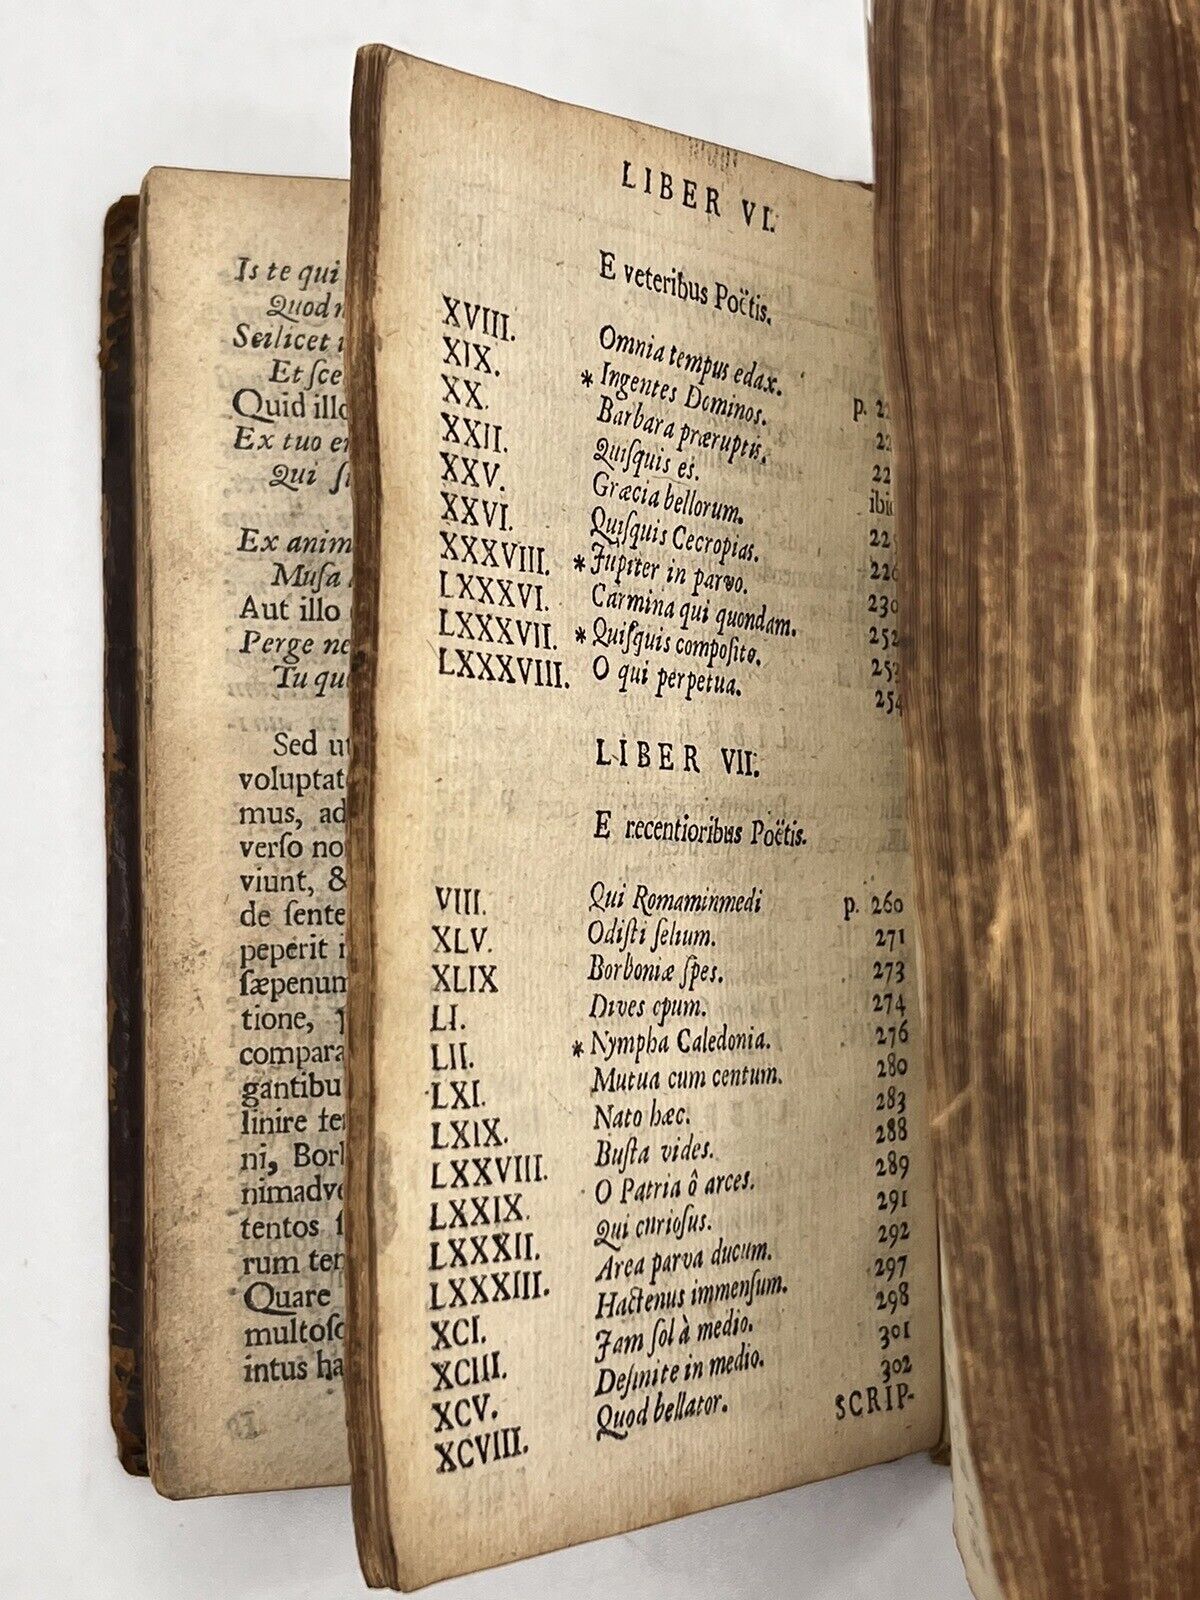 Is te qui
Quod
Scilicet
Et sce
Quid illo
Ex tuo
Qui
Ex anim
Musa
Aut illo
Perge ne
Tu qu
Sed ut
voluptat
mus, ad
verſo no
viunt, &
de ſente
peperit
ſæpenum
tione,
compara
gantibu
linire te
ni, Borb
nimadve
tentos ſ
rum tem
Quare
multoſ
intus ha
LIBER VI.
E veteribus Poëtis.
XVIII. Omnia tempus edax. p. 22
XIX. * Ingentes Dominos. 22
XX. Barbara præruptis. 22
XXII. Quiſquis es. ibi
XXV. Græcia bellorum. 225
XXVI. Quiſquis Cecropias. 226
XXXVIII. * Jupiter in parvo. 230
LXXXVI. Carmina qui quondam. 252
LXXXVII. * Quiſquis compoſito. 253
LXXXVIII. O qui perpetua. 254
LIBER VII.
E recentioribus Poëtis.
VIII. Qui Romaminmedi p. 260
XLV. Odiſti ſelium. 271
XLIX Borboniæ ſpes. 273
LI. Dives opum. 274
LII. * Nympha Caledonia. 276
LXI. Mutua cum centum. 280
LXIX. Nato hæc. 283
LXXVIII. Buſta vides. 288
LXXIX. O Patria ô arces. 289
LXXXII. Qui curioſus. 291
LXXXIII. Area parva ducum. 292
XCI. Hactenus immenſum. 297
XCIII. Jam ſol à medio. 298
XCV. Deſinite in medio. 301
XCVIII. Quod bellator. 302
SCRIP-